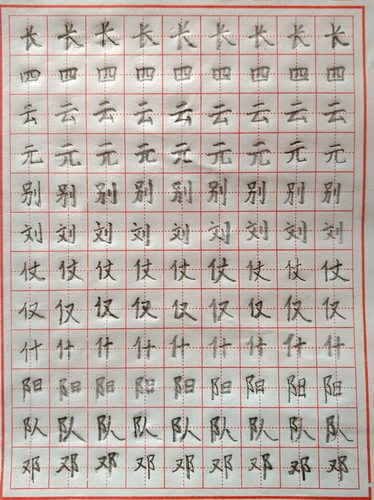 长长长长长长长长长
四四四四四四四四四
云云云云云云云云云
元元元元元元元元元
别别别别别别别别别
刘刘刘刘刘刘刘刘刘
仗仗仗仗仗仗仗仗仗
仅仅仅仅仅仅仅仅仅
什什什什什什什什什
阳阳阳阳阳阳阳阳阳
队队队队队队队队队
邓邓邓邓邓邓邓邓邓